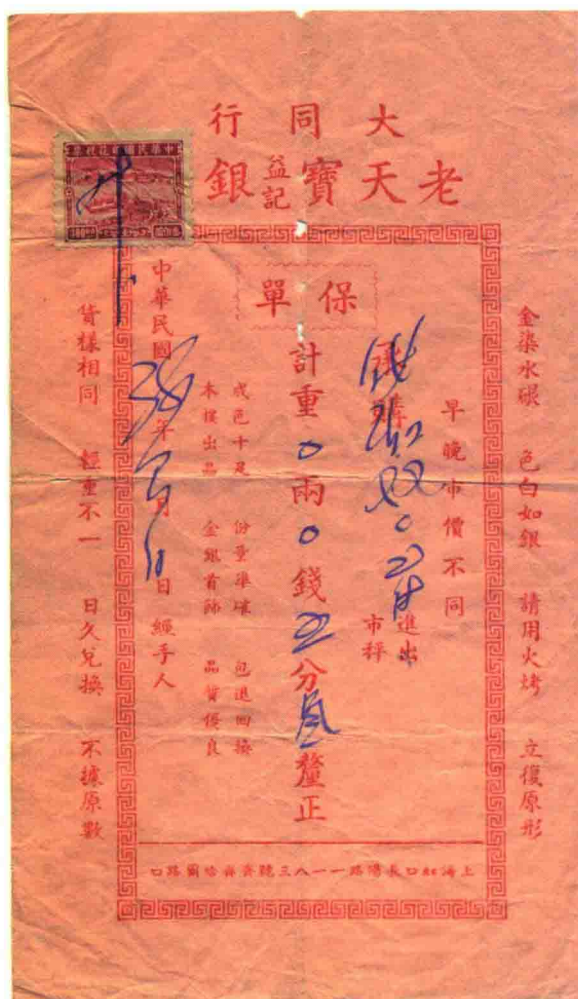 大同行
老天寶益記銀
中華民國印花稅票
保單
金染水碾 色白如銀 請用火烤 立復原形
早晚市價不同
進出
市秤
計重0兩0錢 分 釐正
成色十足 份量準確 包退回換
本樓出品 金銀首飾 品質優良
中華民國38年 月 日 經手人
貨樣相同 輕重不一 日久兌換 不據原數
上海虹口長陽路一一八三號齊齊哈爾路口